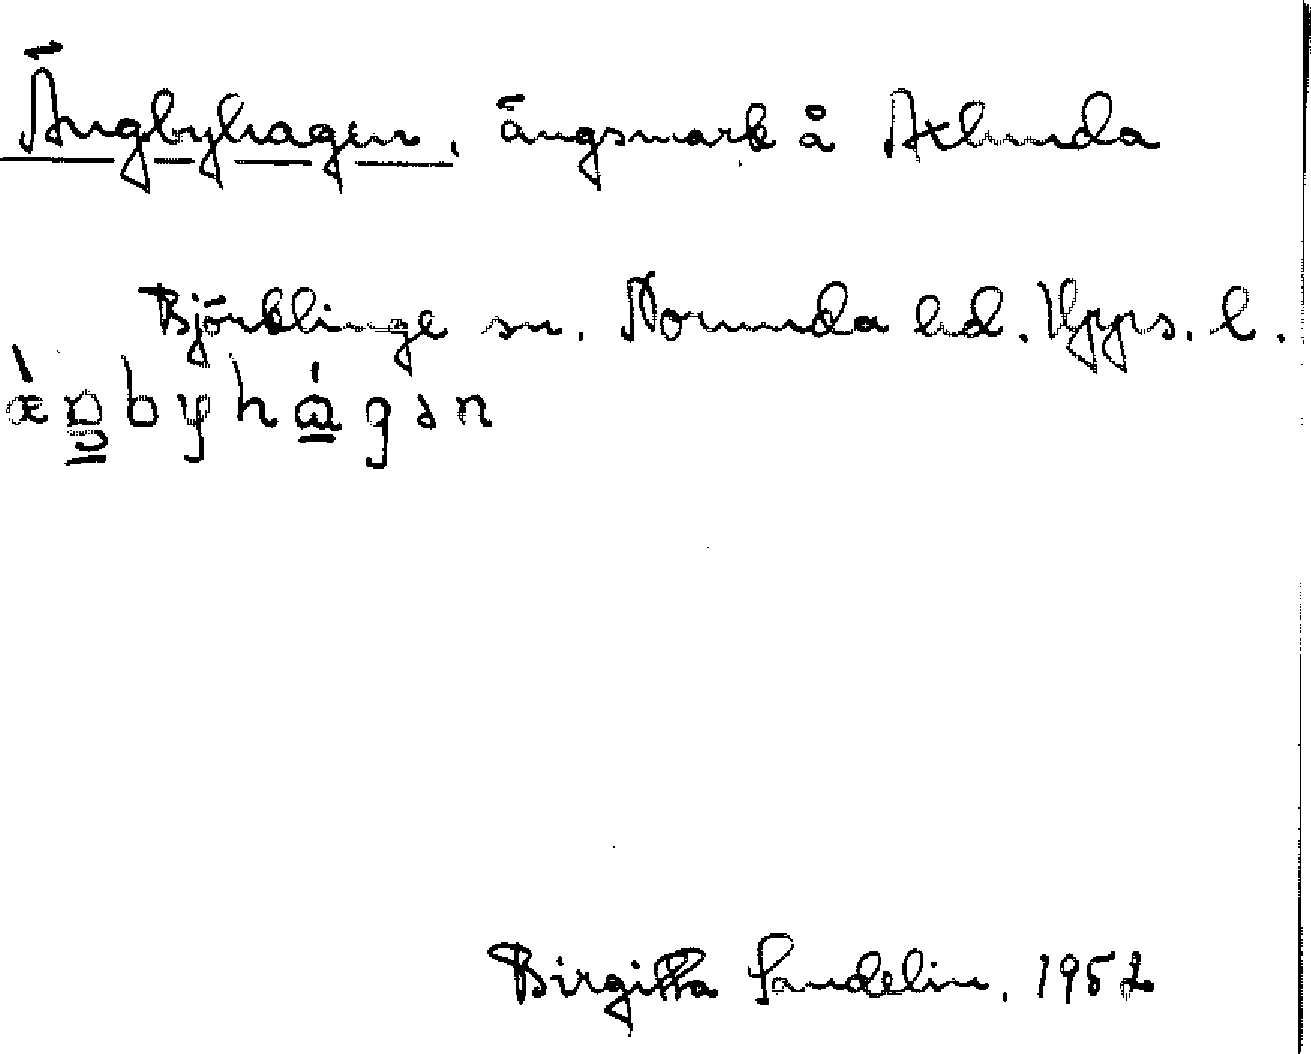 Ängbyhagen, ängsmark å Axlunda
Björklinge sn. Norunda hd. Upps. l.
æ̀ŋbyhágən
Birgitta Sandelin. 1952